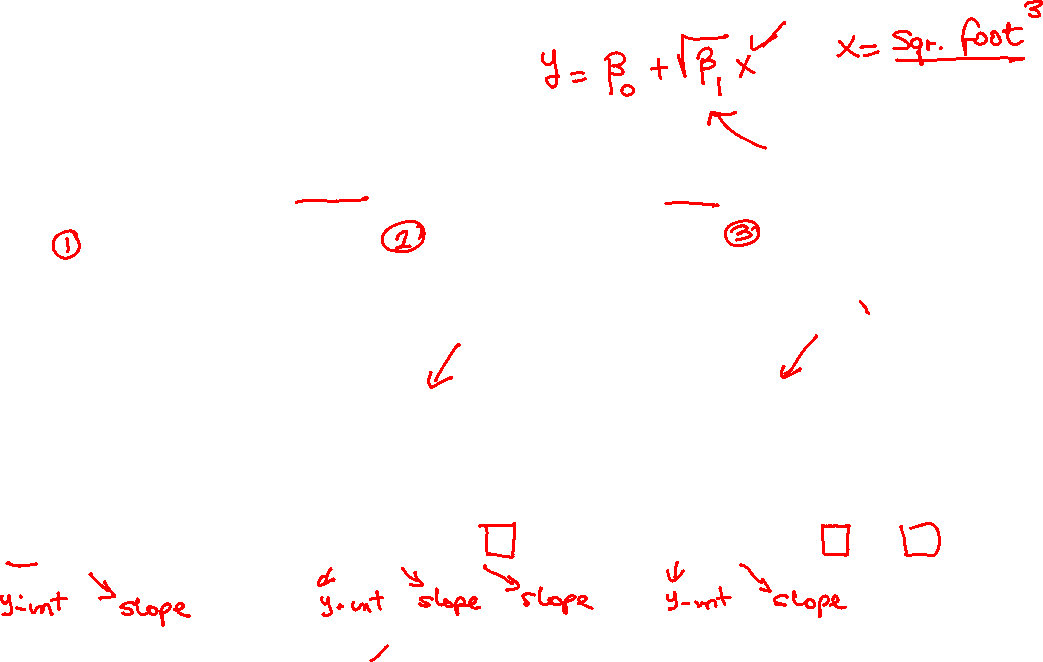 y = β₀ + √β₁ x x = Sqr. foot³
① ② ③
y-int slope y-int slope slope y-int slope